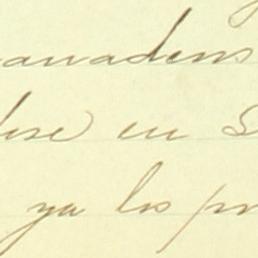 anadens
dose en S
ya los pr